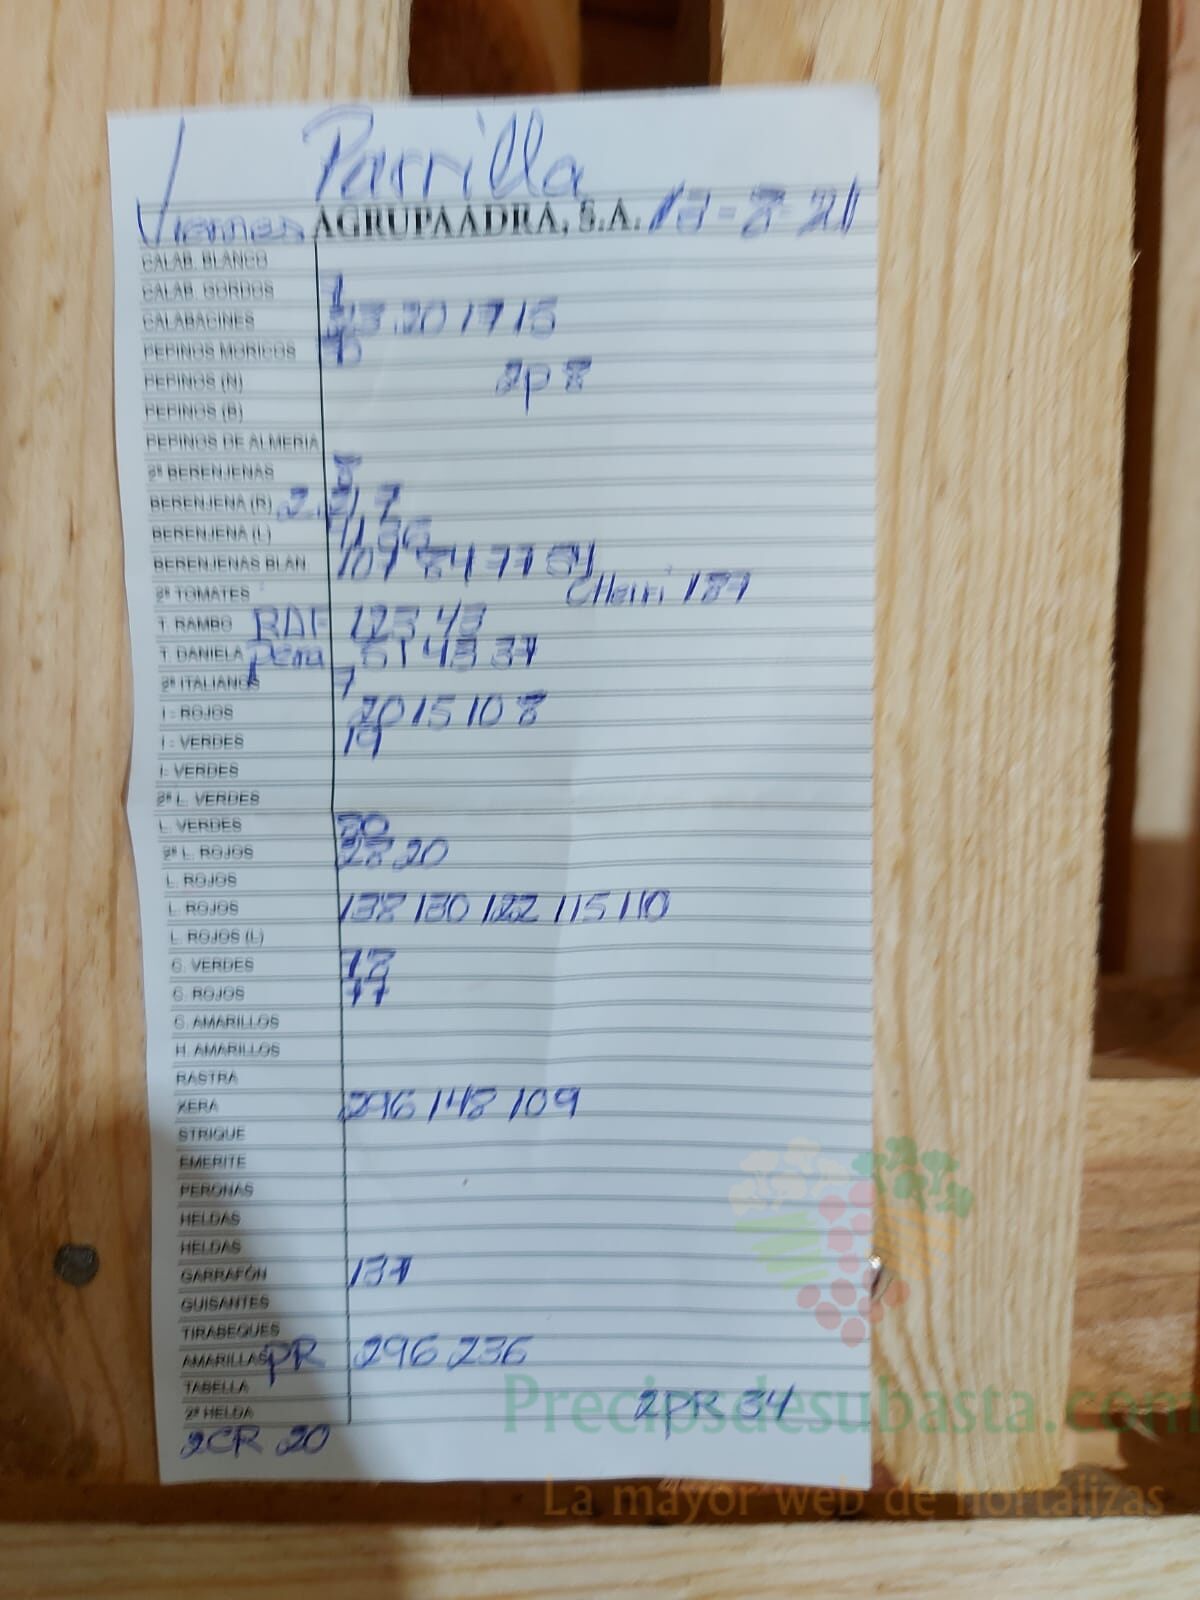 Parrilla
Viernes AGRUPAADRA, S.A. 13-8-21
CALAB. BLANCO
CALAB. GORDOS 1
CALABACINES 20 17 15
PEPINOS MORICOS
PEPINOS (N) 2p 8
PEPINOS (B)
PEPINOS DE ALMERIA
2ª BERENJENAS 8
BERENJENA (R) 7
BERENJENA (L) 71 56
BERENJENAS BLAN. 107 84 77 64
2ª TOMATES CHerri 187
T. RAMBO RAF 123 43
T. DANIELA pera 51 43 37
2ª ITALIANOS 7
I - ROJOS 20 15 10 8
I - VERDES 19
I- VERDES
2ª L. VERDES
L. VERDES 30
2ª L. ROJOS 28 20
L. ROJOS
L. ROJOS 138 130 122 115 110
L. ROJOS (L)
C. VERDES 73
C. ROJOS 77
C. AMARILLOS
H. AMARILLOS
RASTRA
XERA 296 148 109
STRIQUE
EMERITE
PERONAS
HELDAS
HELDAS
GARRAFÓN 137
GUISANTES
TIRABEQUES
AMARILLAS PR 296 236
TABELLA
2ª HELDA 2PR 34
2CR 20
Preciosdesubasta.com
La mayor web de hortalizas